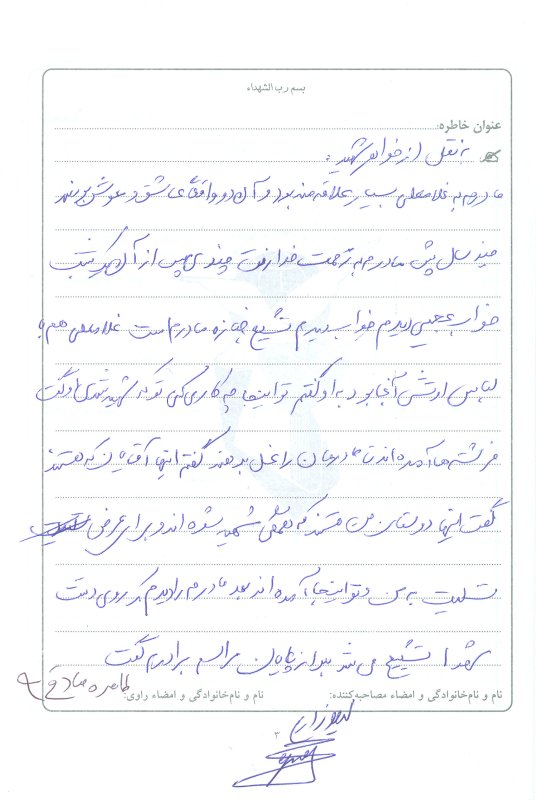 بسم رب الشهداء
عنوان خاطره:
به نقل از خواهر شهید:
مادرم به غلامعلی بسیار علاقه مند بود و آن دو واقعاً عاشق و معشوق بودند
چند سال پیش مادرم به رحمت خدا رفت چندی پس از آن یک شب
خواب عجیبی دیدم خواب دیدم تشییع جنازه مادرم است غلامعلی هم با
لباس ارتشی آنجا بود به او گفتم تو اینجا چه کار می کنی تو که شهید شدی او گفت
فرشته ها آمده اند تا مادرمان را غسل بدهند گفتم اینها آقایان که هستند
گفت اینها دوستان من هستند که همگی شهید شده اند و برای عرض
تسلیت به من و تو اینجا آمده اند بعد مادرم را دیدم که روی دست
شهدا تشییع می شد بعد از پایان مراسم برادرم گفت
نام و نام‌خانوادگی و امضاء مصاحبه‌کننده:
نام و نام‌خانوادگی و امضاء راوی:
طاهره صادقی
۳